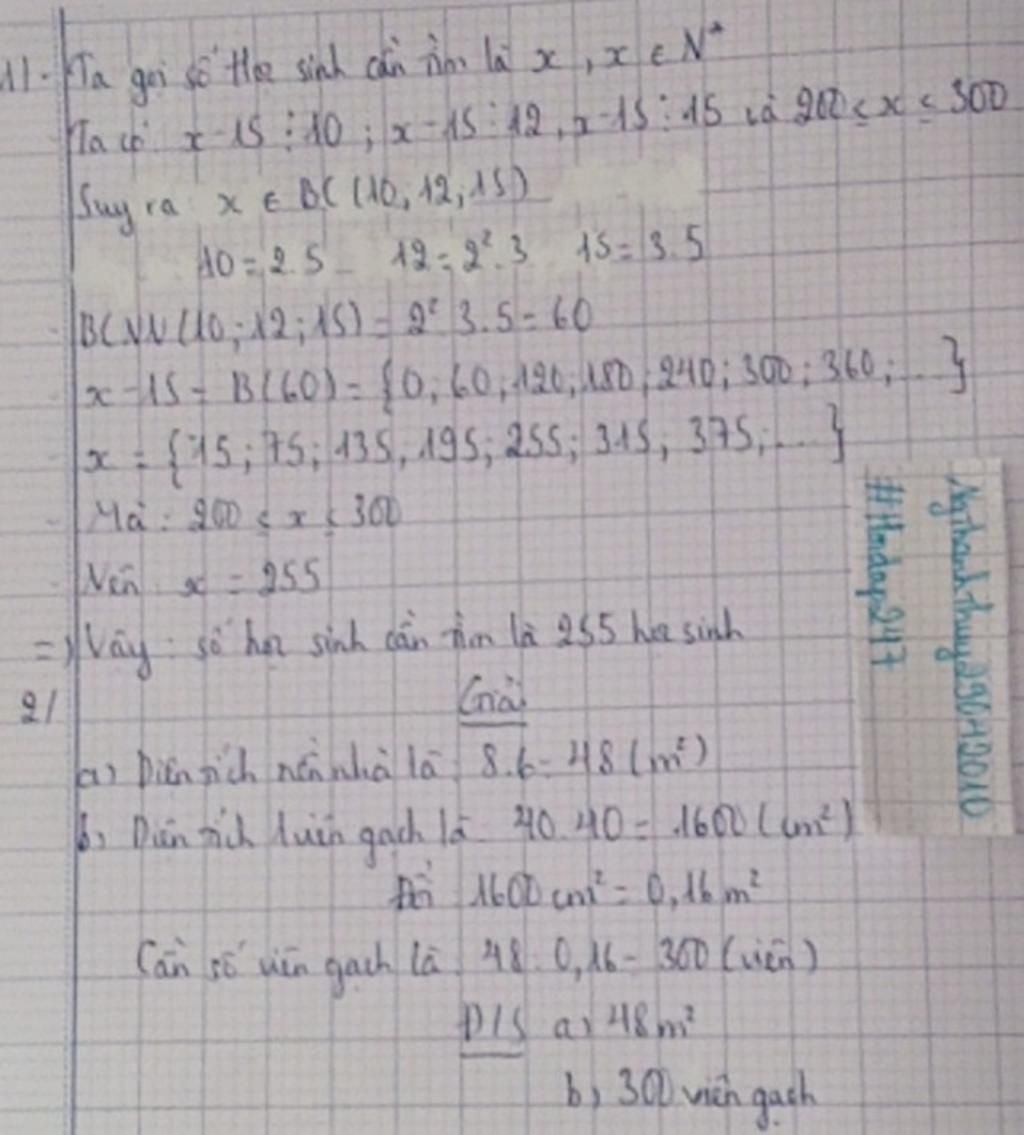 1/. Ta gọi số học sinh cần tìm là x, x ∈ N*
Ta có x - 15 ⋮ 10 ; x - 15 ⋮ 12, x - 15 ⋮ 15 và 200 ≤ x ≤ 300
Suy ra x ∈ BC (10, 12, 15)
10 = 2.5 12 = 2². 3 15 = 3.5
BCNN (10; 12; 15) = 2² 3.5 = 60
x - 15 = B(60) = {0; 60; 120; 180; 240; 300; 360; ...}
x = {15; 75; 135, 195; 255; 315, 375; ...}
Mà: 200 ≤ x ≤ 300
Nên x = 255
=> Vậy: số học sinh cần tìm là 255 học sinh
2/ Giải
a) Diện tích nền nhà là 8.6 = 48 (m²)
b) Diện tích 1 viên gạch là 40.40 = 1600 (cm²)
Đổi 1600 cm² = 0,16 m²
Cần số viên gạch là 48 : 0,16 = 300 (viên)
Đ/S a) 48 m²
b) 300 viên gạch
Ngthanhthuy29042010
#Hoidap247